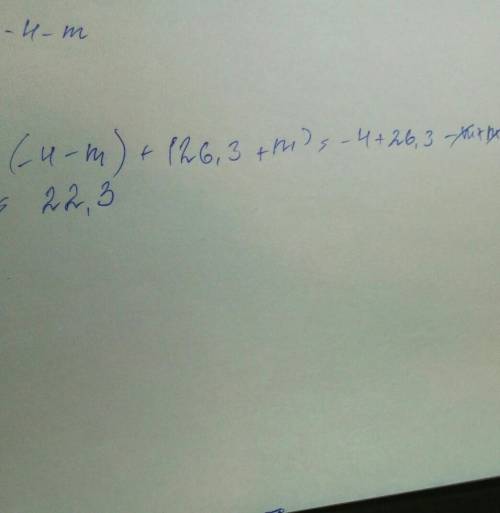 -4-m
(-4-m)+(26,3+m)=-4+26,3-m+m
= 22,3